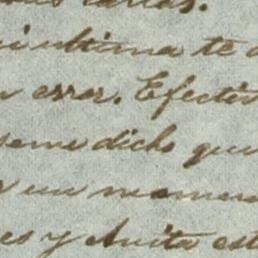 cartas.
ultima te
error. Efectiv
seme dicho que
un momen
es y Anita est